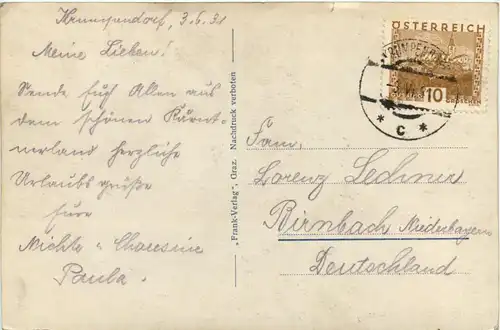 Krumpendorf, 3.6.31
Meine Lieben!
Sende Euch Allen aus
dem schönen Kärnt-
nerland herzliche
Urlaubsgrüße
Eure
Nichte u. Cousine
Paula.
"Frank-Verlag", Graz. Nachdruck verboten
ÖSTERREICH
10 GROSCHEN
* C *
Fam.
Lorenz Lechner
Birnbach Niederbayern
Deutschland